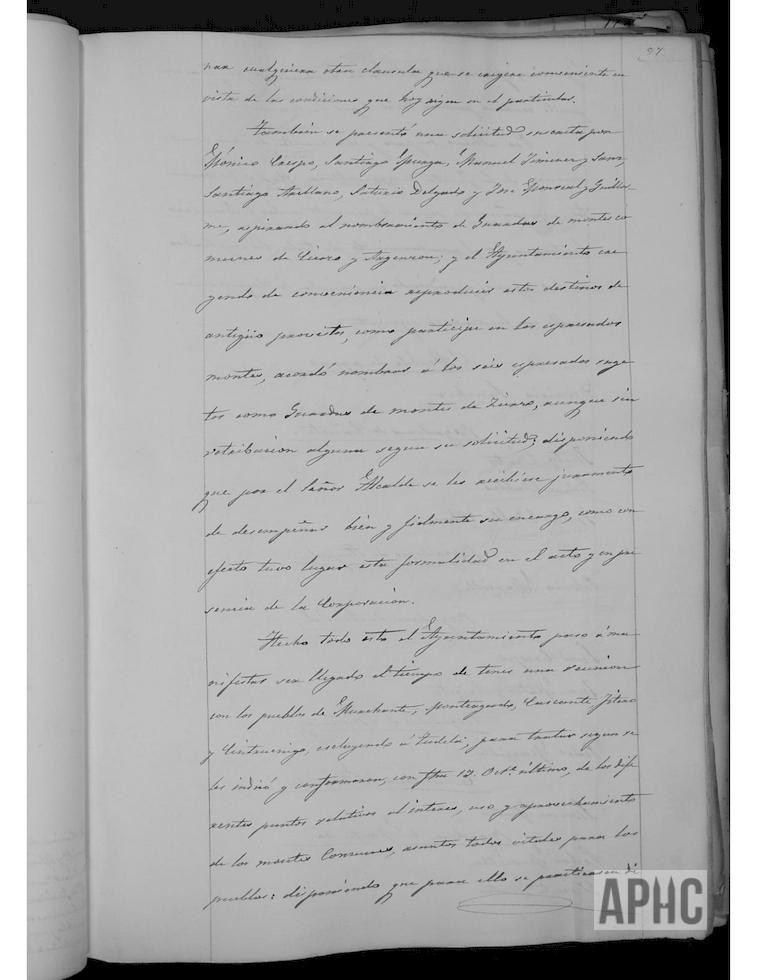 97
nar cualquiera otra clausula que se exigiere conveniente en
vista de las condiciones que hoy rigen en el particular.
Tambien se presentó una solicitud suscrita por
Mónico Crespo, Santiago Ypuzga, Manuel Jimenez y Sanz,
Santiago Arellano, Saturio Delgado y Jose Monreal y Guillor-
me, aspirando al nombramiento de Guardas de montes co
munes de Cierzo y Argenzon; y el Ayuntamiento cre
yendo de conveniencia reproducir estos destinos de
antigüo provistos, como participe en los espresados
montes, acordó nombrar á los seis espresados suge
tos como Guardas de montes de Zierzo, aunque sin
retribucion alguna segun su solicitud; disponiendo
que por el Señor Alcalde se les recibiese juramento
de desempeñar bien y fielmente su encargo, como con
efecto tuvo lugar esta formalidad en el acto y en pre
sencia de la Corporacion.
Hecho todo esto el Ayuntamiento paso á ma
nifestar ser llegado el tiempo de tener una reunion
con los pueblos de Murchante, Monteagudo, Cascante Fitero
y Cintruenigo, escluyendo á Tudela, para tratar segun se
les indicó y conformaron, con fha 12 Octe. último, de los dife
rentes puntos relativos al interes, uso y aprovechamiento
de los montes Comunes, asuntos todos vitales para los
pueblos: disponiendo que para ello se practicasen di
APHC